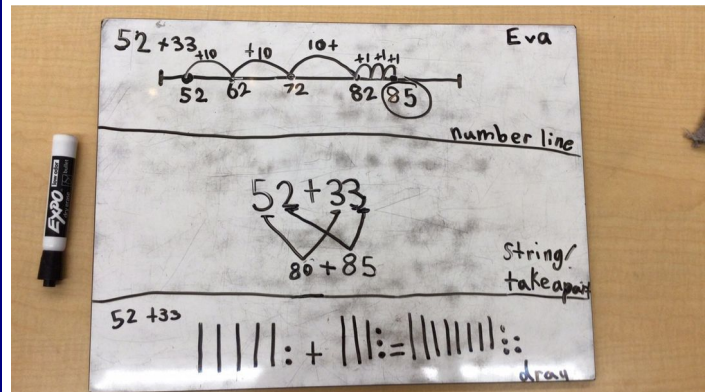 52 +33 Eva
+10 +10 10+ +1 +1 +1
52 62 72 82 85
number line
52+33
80+85
string/
takeapart
52 +33
+ =
draw
EXPO